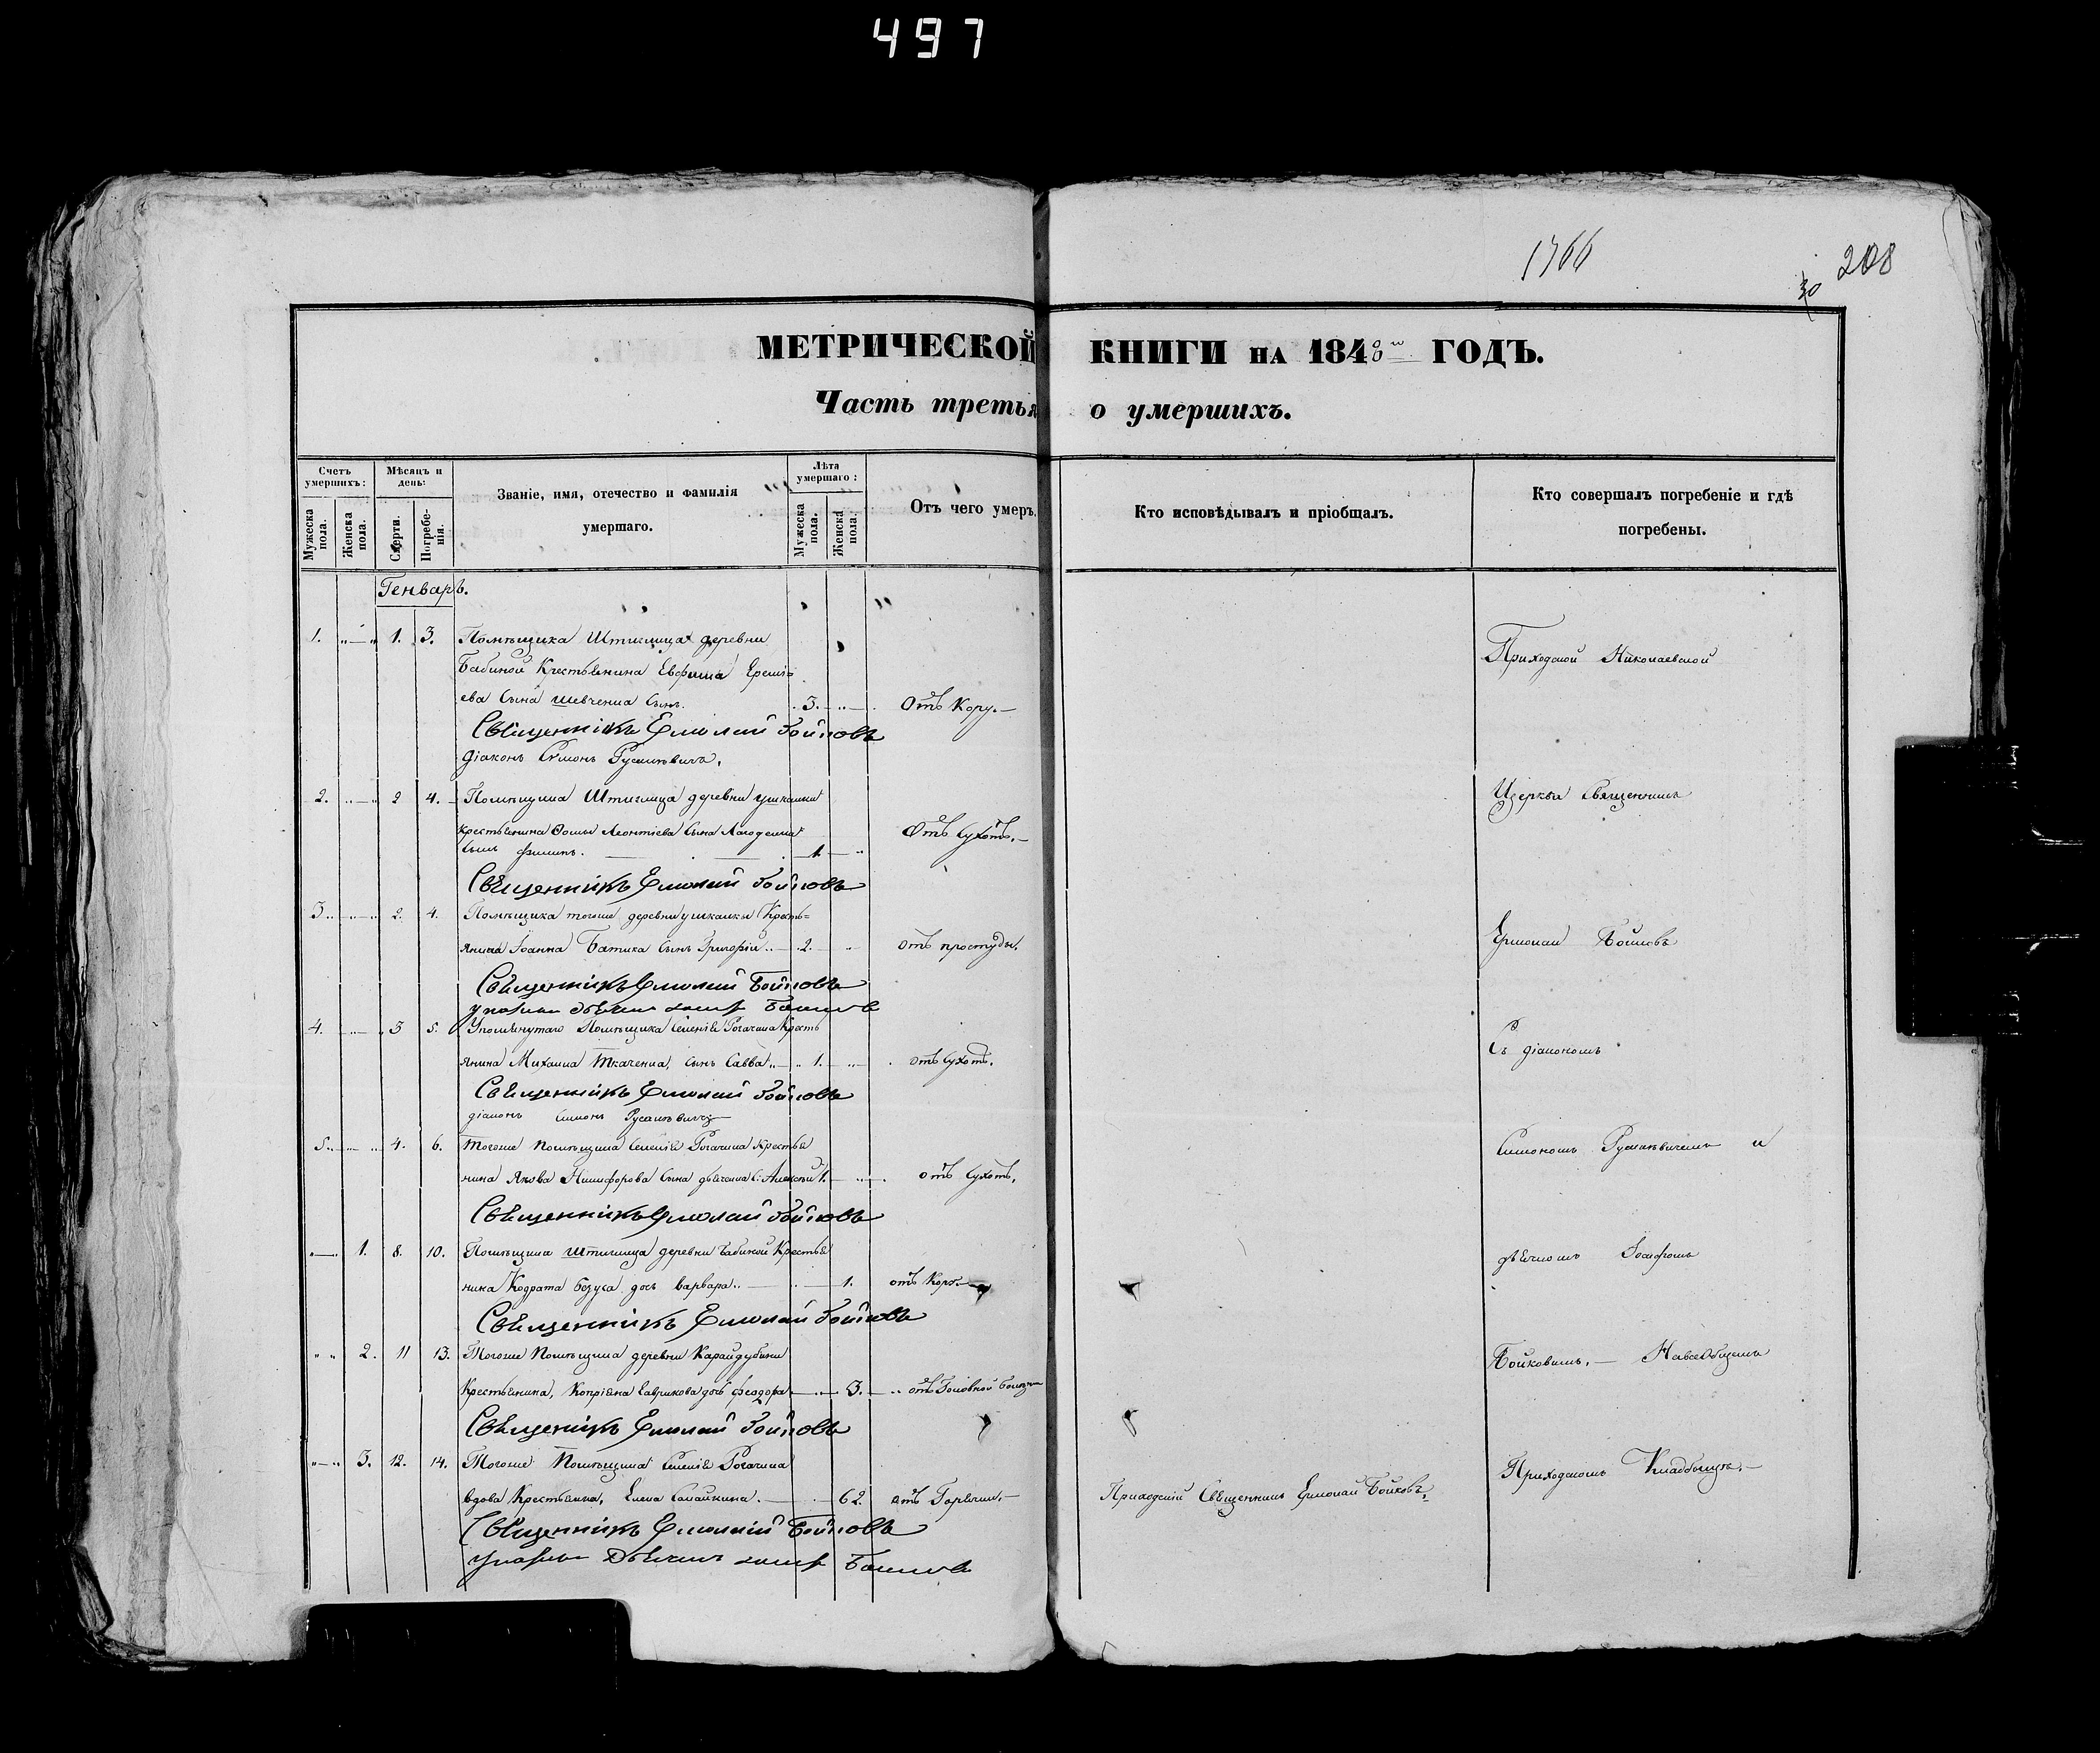 497
1766
208
30
МЕТРИЧЕСКОЙ КНИГИ НА 1848й ГОДЪ.
Часть третья о умершихъ.
Счетъ умершихъ:
Мужеска пола.
Женска пола.
Мѣсяцъ и день:
Смерти.
Погребенія.
Званіе, имя, отечество и фамилія
умершаго.
Лѣта умершаго:
Мужеска пола.
Женска пола.
Отъ чего умеръ.
Кто исповѣдывалъ и пріобщалъ.
Кто совершалъ погребеніе и гдѣ
погребены.
Генварь.
1. 1. 3. Помѣщика Штиглица деревни
Бабиной Крестьянина Евфима
ева сына Шевченка сынъ 3. Отъ Кору.
Священникъ Ермолай Бойковъ
Діаконъ Симонъ Русаневичъ.
2. 2 4. Помѣщика Штиглица деревни Ушкалки
крестьянина Фомы Леонтіева сына
сынъ Филипъ. 1. Отъ Сухотъ.
Священникъ Ермолай Бойковъ
3. 2. 4. Помѣщика тогоже деревни Ушкалки Кресть=
янина Іоанна Батика сынъ Григорій 2. отъ простуды.
Священникъ Ермолай Бойковъ
4. 3 5. Упомянутаго Помѣщика селенія Рогачика Кресть
янина Михаила Ткаченка, сынъ Савва 1. отъ Сухотъ.
Священникъ Ермолай Бойковъ
діаконъ Симонъ Русаневичъ
5. 4. 6. Тогоже помѣщика селенія Рогачика Крестья
нина Якова Никифорова сына Алексѣй 1. отъ Сухотъ.
Священникъ Ермолай Бойковъ
1. 8. 10. Помѣщика Штиглица деревни Бабиной Крестья
нина Кодрата дочь Варвара 1. отъ Кору.
Священникъ Ермолай Бойковъ
2. 11 13. Тогоже Помѣщика деревни Карайдубины
Крестьянина, Гаврикова дочь Феодора 3. отъ Головной болезни
Священникъ Ермолай Бойковъ
3. 12. 14. Тогоже Помѣщика селенія Рогачика
вдова Крестьянка, Елена 62. отъ Горячки.
Священникъ Ермолай Бойковъ
Приходскій Священникъ Ермолай Бойковъ.
Приходской Николаевской
Церкви Священникъ
Ермолай Бойковъ
Съ діакономъ
Симономъ Русаневичемъ и
дьячкомъ
Бойковымъ. На всеобщемъ
Приходскомъ Кладбищѣ.